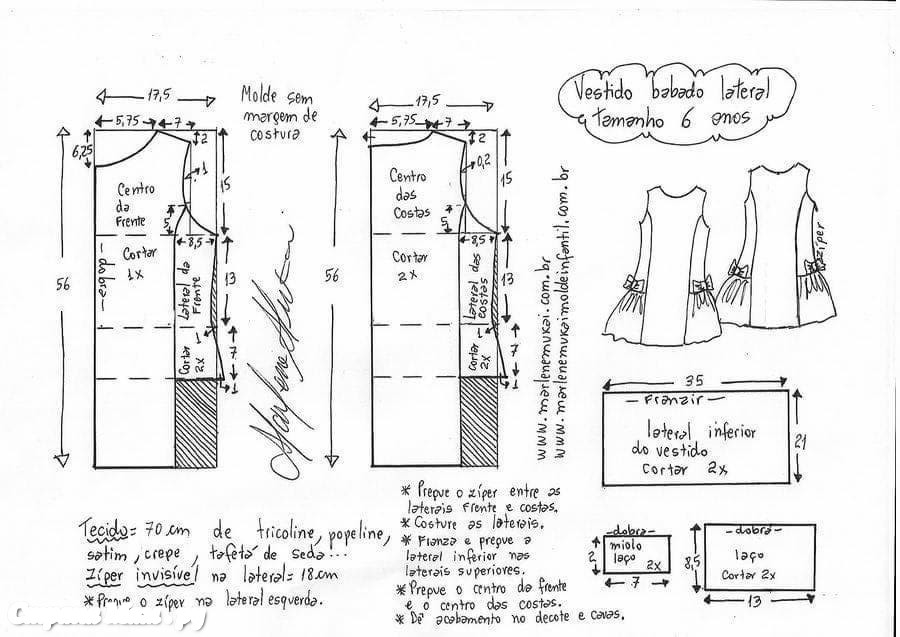 Vestido babado lateral
tamanho 6 anos
Molde sem
margem de
costura
17,5
5,75
7
2
6,25
1
15
Centro
da
Frente
5
8,5
56
dobra
Cortar
1x
Lateral da
Frente
13
Cortar
2x
1
7
1
17,5
5,75
7
2
0,2
15
Centro
das
Costas
5
8,5
56
Cortar
2x
Lateral das
costas
13
Cortar
2x
1
7
1
www.marlenemukai.com.br
www.marlenemukaimoldeinfantil.com.br
zíper
35
Franzir
lateral inferior
do vestido
Cortar 2x
21
dobra
miolo
laço
2x
2
7
dobra
laço
Cortar 2x
8,5
13
Tecido= 70 cm de tricoline, popeline,
satim, crepe, tafetá de seda...
Zíper invisível na lateral= 18 cm
* Pregue o zíper na lateral esquerda.
* Pregue o zíper entre as
laterais frente e costas.
* Costure as laterais.
* Franza e pregue a
lateral inferior nas
laterais superiores.
* Prepue o centro da frente
e o centro das costas.
* Dê acabamento no decote e cavas.